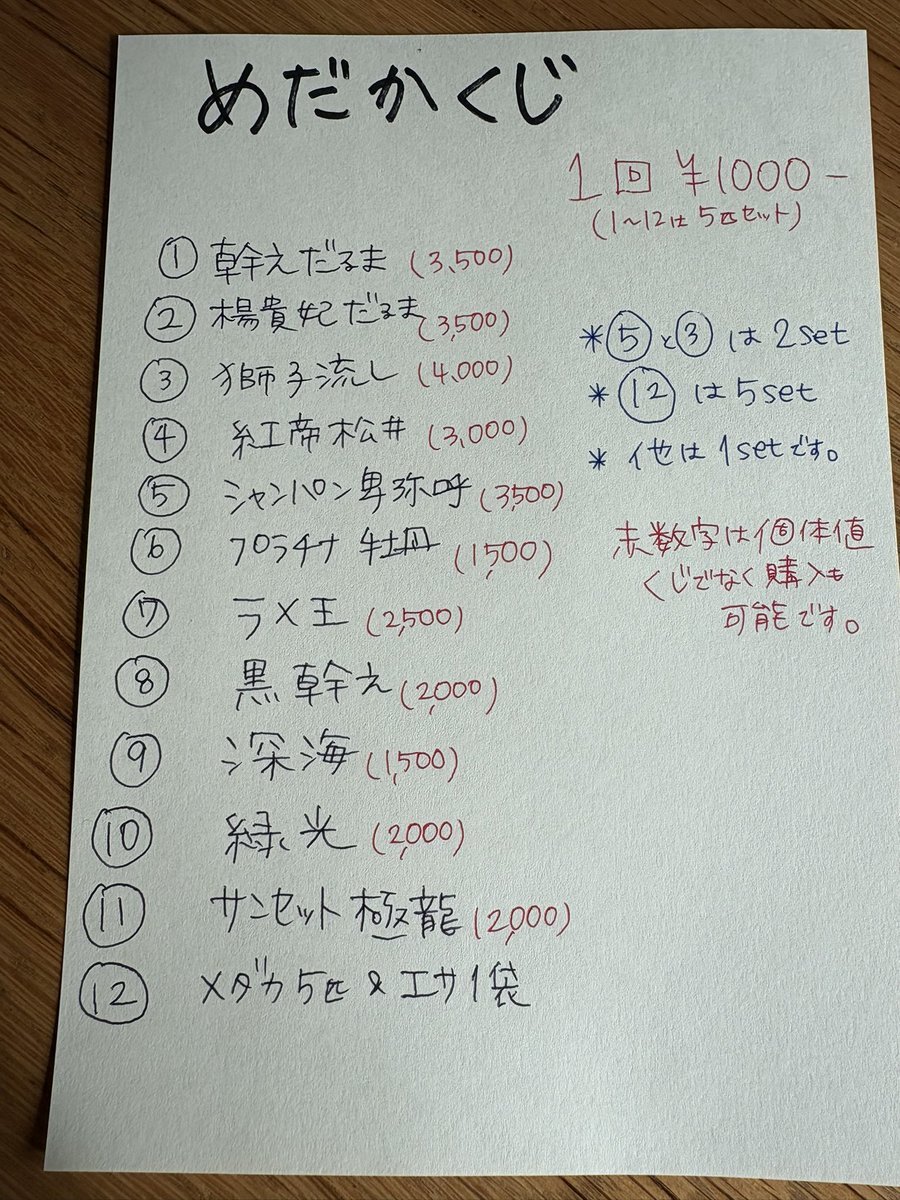 めだかくじ
1回 ¥1000-
(1~12は5匹セット)
① 幹えだるま (3,500)
② 楊貴妃だるま (3,500)
③ 獅子流し (4,000)
④ 紅帝松井 (3,000)
⑤ シャンパン卑弥呼 (3,500)
⑥ プラチナ牡丹 (1,500)
⑦ ラメ王 (2,500)
⑧ 黒幹え (2,000)
⑨ 深海 (1,500)
⑩ 緑光 (2,000)
⑪ サンセット極龍 (2,000)
⑫ メダカ5匹&エサ1袋
*⑤と③は2set
*⑫は5set
*他は1setです。
赤数字は個体値
くじでなく購入も
可能です。